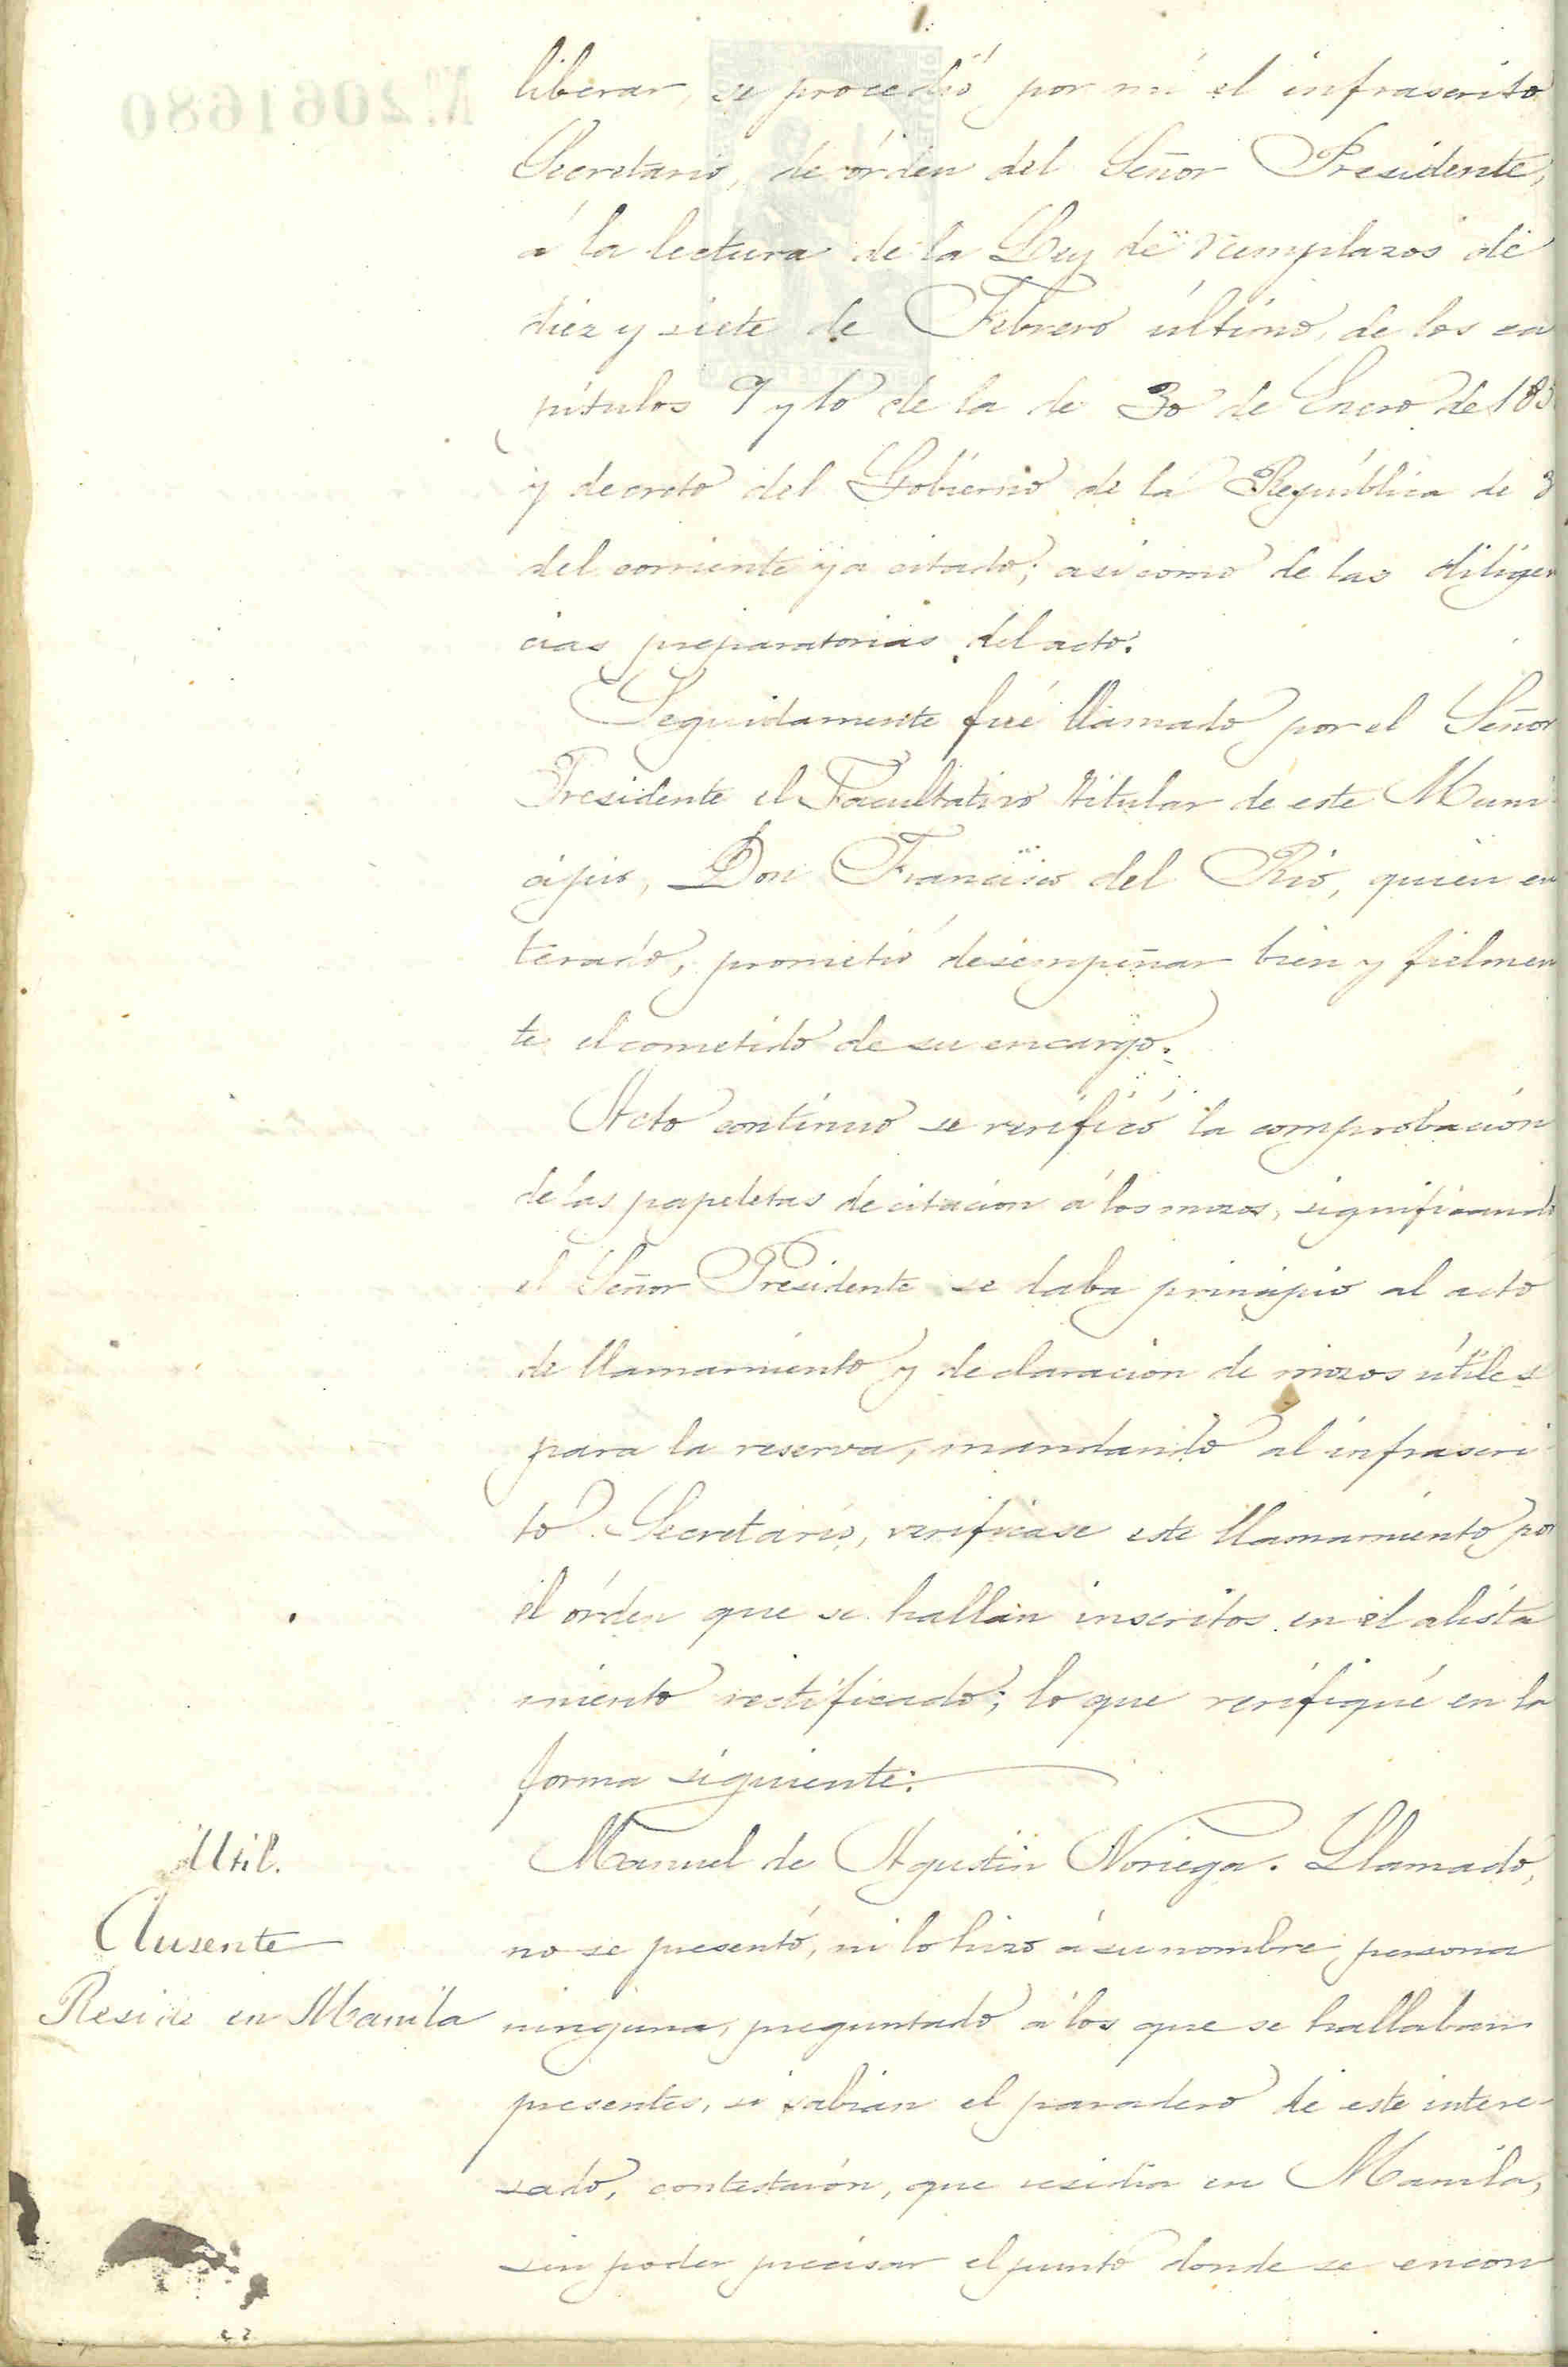 Nº. 2061680
liberar, se procedió por mí el infrascrito
Secretario, de órden del Señor Presidente,
á la lectura de la Ley de reemplazos de
diez y siete de Febrero último, de los ca
pítulos 9 y 10 de la de 30 de Enero de 185
y decreto del Gobierno de la República de 3
del corriente ya citado; asi como de las diligen
cias preparatorias del acto.
Seguidamente fué llamado por el Señor
Presidente el Facultativo titular de este Muni
cipio, Don Francisco del Rio, quien en
terado, prometió desempeñar bien y fielmen
te el cometido de su encargo.
Acto contínuo se verificó la comprobacion
de las papeletas de citacion á los mozos, significando
el Señor Presidente se daba principio al acto
de llamamiento y declaracion de mozos útiles
para la reserva, mandando al infrascri
to Secretario, verificase este llamamiento por
el órden que se hallan inscritos en el alista
miento rectificado; lo que verifiqué en la
forma siguiente:
Util.
Ausente
Reside en Manila
Manuel de Agustin Noriega. Llamado,
no se presentó, ni lo hizo á su nombre persona
ninguna, preguntado á los que se hallaban
presentes, si sabian el paradero de este intere-
sado, contestaron, que residia en Manila,
sin poder precisar el punto donde se encon